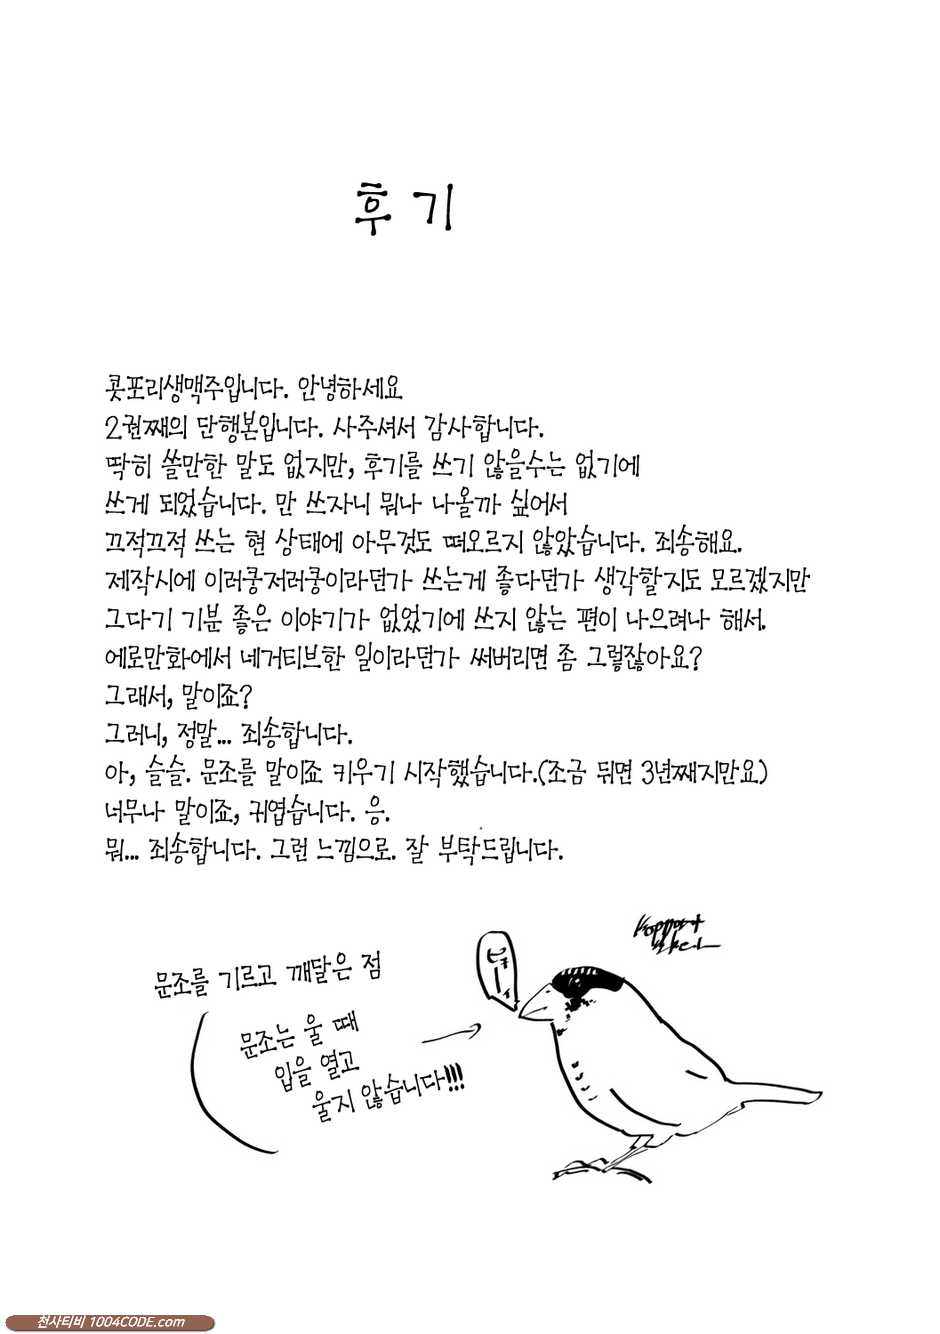 후기
콧포리생맥주입니다. 안녕하세요
2권째의 단행본입니다. 사주셔서 감사합니다.
딱히 쓸만한 말도 없지만, 후기를 쓰기 않을수는 없기에
쓰게 되었습니다. 만 쓰자니 뭐나 나올까 싶어서
끄적끄적 쓰는 현 상태에 아무것도 떠오르지 않았습니다. 죄송해요.
제작시에 이러쿵저러쿵이라던가 쓰는게 좋다던가 생각할지도 모르겠지만
그다기 기분 좋은 이야기가 없었기에 쓰지 않는 편이 나으려나 해서.
에로만화에서 네거티브한 일이라던가 써버리면 좀 그렇잖아요?
그래서, 말이죠?
그러니, 정말... 죄송합니다.
아, 슬슬. 문조를 말이죠 키우기 시작했습니다.(조금 뒤면 3년째지만요)
너무나 말이죠, 귀엽습니다. 응.
뭐... 죄송합니다. 그런 느낌으로. 잘 부탁드립니다.
문조를 기르고 깨달은 점
문조는 울 때
입을 열고
울지 않습니다!!!
천사티비 1004CODE.com